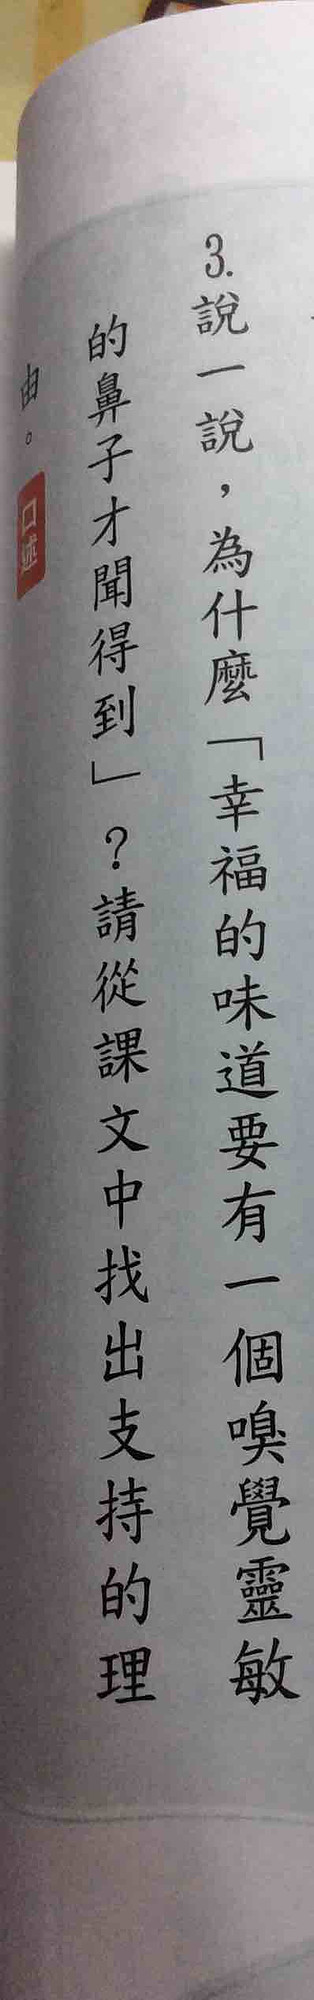 3.說一說，為什麼「幸福的味道要有一個嗅覺靈敏
的鼻子才聞得到」？請從課文中找出支持的理
由。 口述